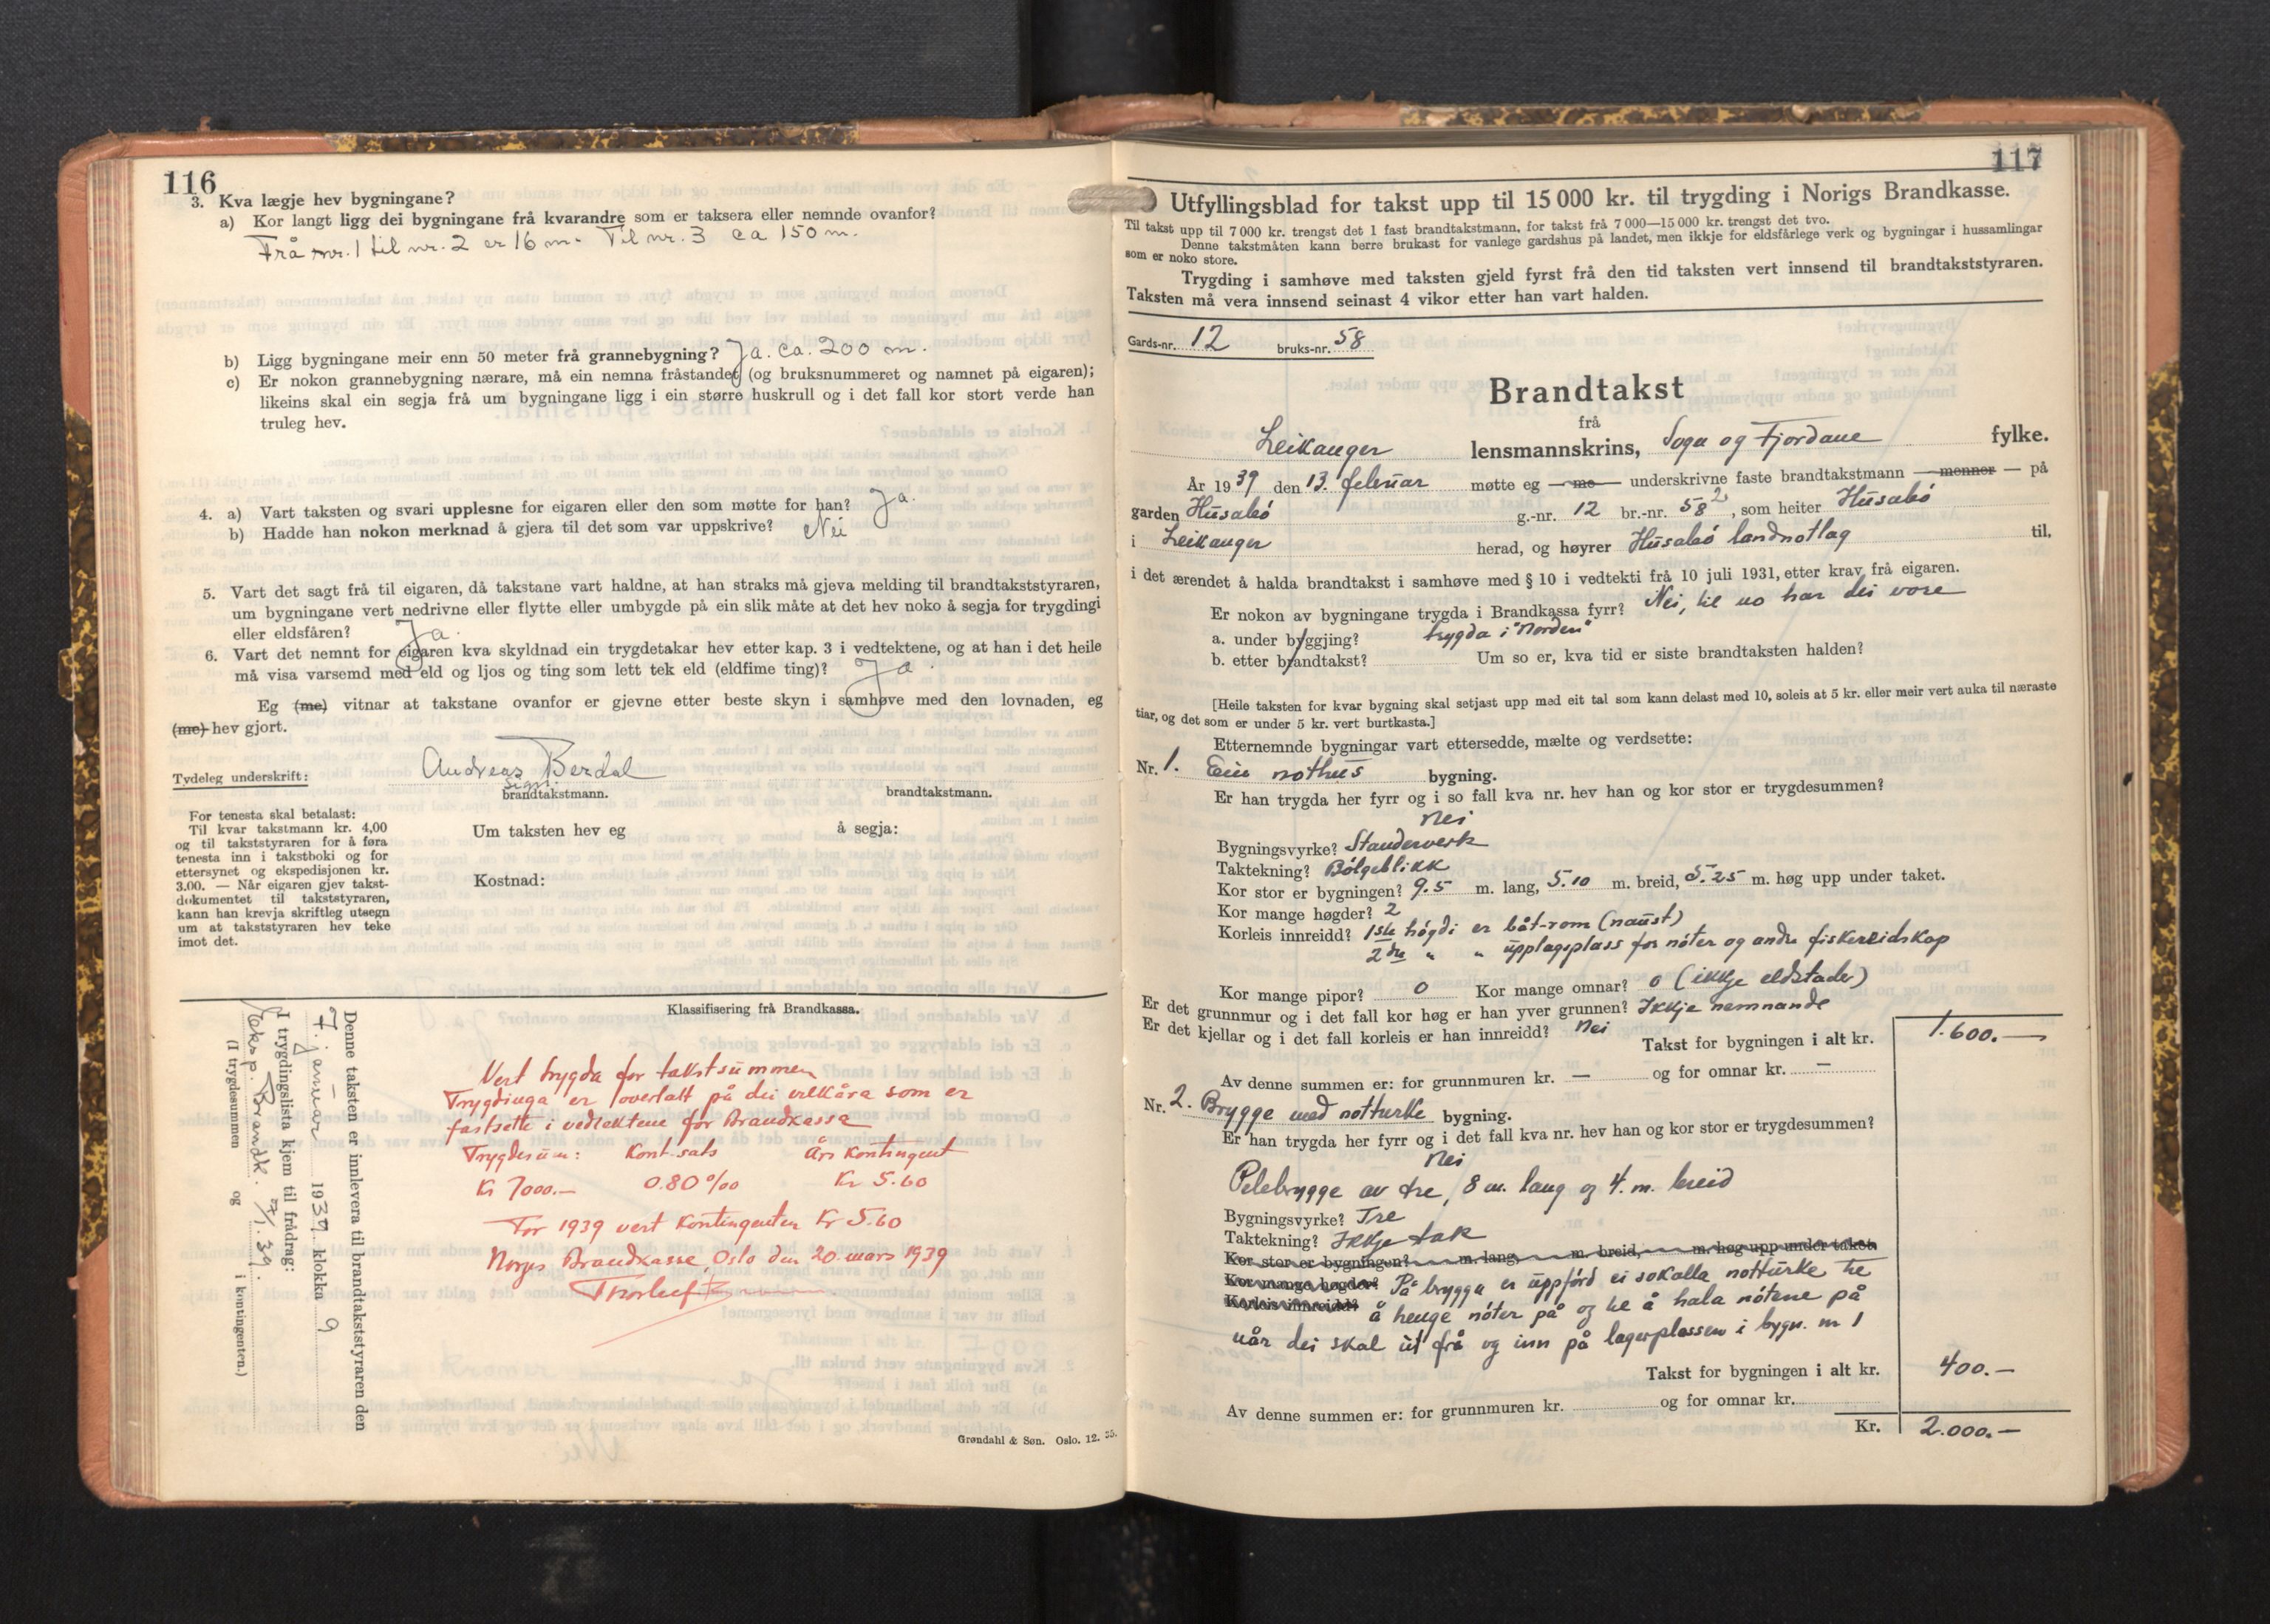 116
3. Kva lægje hev bygningane?
a) Kor langt ligg dei bygningane frå kvarandre som er taksera eller nemnde ovanfor?
Frå nr. 1 til nr. 2 er 16 m. Til nr. 3 ca 150 m.
b) Ligg bygningane meir enn 50 meter frå grannebygning? Ja. Ca. 200 m.
c) Er nokon grannebygning nærare, må ein nemna fråstandet (og bruksnummeret og namnet på eigaren);
likeins skal ein segja frå um bygningane ligg i ein større huskrull og i det fall kor stort verde han
truleg hev.
4. a) Vart taksten og svari upplesne for eigaren eller den som møtte for han? Ja.
b) Hadde han nokon merknad å gjera til det som var uppskrive? Nei
5. Vart det sagt frå til eigaren, då takstane vart haldne, at han straks må gjeva melding til brandtakststyraren,
um bygningane vert nedrivne eller flytte eller umbygde på ein slik måte at det hev noko å segja for trygdingi
eller eldsfåren? Ja.
6. Vart det nemnt for eigaren kva skyldnad ein trygdetakar hev etter kap. 3 i vedtektene, og at han i det heile
må visa varsemd med eld og ljos og ting som lett tek eld (eldfime ting)? Ja.
Eg (me) vitnar at takstane ovanfor er gjevne etter beste skyn i samhøve med den lovnaden, eg
(me) hev gjort.
Tydeleg underskrift: Andreas Berdal
sign.
brandtakstmann. brandtakstmann.
For tenesta skal betalast:
Til kvar takstmann kr. 4,00
og til takststyraren for å føra
tenesta inn i takstboki og for
ettersynet og ekspedisjonen kr.
3.00. — Når eigaren gjev takst-
dokumentet til takststyraren,
kann han krevja skriftleg utsegn
um at takststyraren hev teke
imot det.
Um taksten hev eg å segja:
Kostnad:
Denne taksten er innlevera til brandtakststyraren den
7. januar 1939 klokka 9
I trygdingslista kjem til frådrag:
Eksp. Brandk. 7/1. 39.
(I trygdesummen og i kontingenten.)
Klassifisering frå Brandkassa.
Vert trygda for takstsummen
Trygdinga er overlatt på dei vilkåra som er
fastsette i vedtektene for Brandkassa
Trygdesum: Kont.sats Års kontingent
Kr 7000.- 0.80 ‰ Kr 5.60
For 1939 vert kontingenten Kr 5.60
Norges Brandkasse, Oslo den 20. mars 1939
Grøndahl & Søn. Oslo. 12. 35.
117
Utfyllingsblad for takst upp til 15 000 kr. til trygding i Norigs Brandkasse.
Til takst upp til 7 000 kr. trengst det 1 fast brandtakstmann, for takst frå 7 000—15 000 kr. trengst det tvo.
Denne takstmåten kann berre brukast for vanlege gardshus på landet, men ikkje for eldsfårlege verk og bygningar i hussamlingar
som er noko store.
Trygding i samhøve med taksten gjeld fyrst frå den tid taksten vert innsend til brandtakststyraren.
Taksten må vera innsend seinast 4 vikor etter han vart halden.
Gards-nr. 12 bruks-nr. 58
Brandtakst
frå
Leikanger lensmannskrins, Sogn og Fjordane fylke.
År 1939 den 13. februar møtte eg — me — underskrivne faste brandtakstmann — menner — på
garden Husabø g.-nr. 12 br.-nr. 58 2, som heiter Husabø
i Leikanger herad, og høyrer Husabø landnotlag til,
i det ærendet å halda brandtakst i samhøve med § 10 i vedtekti frå 10 juli 1931, etter krav frå eigaren.
Er nokon av bygningane trygda i Brandkassa fyrr? Nei, til no har dei vore
a. under byggjing? trygda i "Norden"
b. etter brandtakst? Um so er, kva tid er siste brandtaksten halden?
[Heile taksten for kvar bygning skal setjast upp med eit tal som kann delast med 10, soleis at 5 kr. eller meir vert auka til næraste
tiar, og det som er under 5 kr. vert burtkasta.]
Etternemnde bygningar vart ettersedde, mælte og verdsette:
Nr. 1. Ein nothus bygning.
Er han trygda her fyrr og i so fall kva nr. hev han og kor stor er trygdesummen?
Nei
Bygningsvyrke? Standerverk
Taktekning? Bølgeblikk
Kor stor er bygningen? 9.5 m. lang, 5.10 m. breid, 5.25 m. høg upp under taket.
Kor mange høgder? 2
Korleis innreidd? 1ste høgdi er båt-rom (naust)
2dre " " upplagsplass for nøter og andre fiskereidskap
Kor mange pipor? 0 Kor mange omnar? 0 (ikkje eldstader)
Er det grunnmur og i det fall kor høg er han yver grunnen? Ikkje nemnande
Er det kjellar og i det fall korleis er han innreidd? Nei
Takst for bygningen i alt kr. 1.600.—
Av denne summen er: for grunnmuren kr. — og for omnar kr. —
Nr. 2. Brygge med notturke bygning.
Er han trygda her fyrr og i det fall kva nr. hev han og kor stor er trygdesummen?
Nei
Pelebrygge av tre, 8 m. lang og 4. m. breid
Bygningsvyrke? Tre
Taktekning? Ikkje tak
Kor stor er bygningen? m. lang, m. breid, m. høg upp under taket.
Kor mange høgder? På brygga er uppførd ei sokalla notturke tre
Korleis innreidd? å henge nøter på og te å hala nøtene på
når dei skal ut frå og inn på lagerplassen i bygn. nr 1
Takst for bygningen i alt kr. 400.—
Av denne summen er: for grunnmuren kr. og for omnar kr.
Kr. 2.000.—